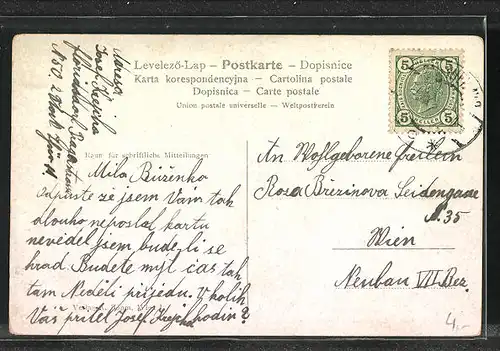 Levelező-Lap – Postkarte – Dopisnice
Karta korespondencyjna – Cartolina postale
Dopisnica – Carte postale
Union postale universelle – Weltpostverein
Adresa
Josef
No 50. 2 Stock Thür
Raum für schriftliche Mitteilungen
Milá Růženko
odpuste ze jsem Vám tak
dlouho neposlal kartu
neviděl jsem bude-li se
hrad Budete mýt čas tak
tam Neděli prijedu. V kolik
Váš pritel Josef hodin?
An Wohlgeborene Freilein
Rosa Brezinova Seidengasse
N. 35
Wien
Neubau VII Bez.
5 5
5 5
4,-